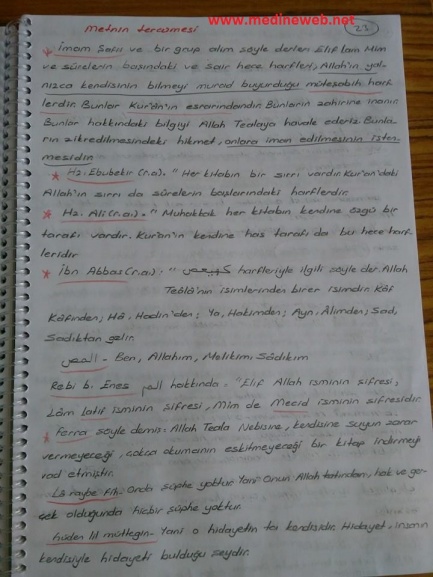 www.medineweb.net
Metnin tercümesi
23
* İmam Şabi ve bir grup alim şöyle derler: Elif Lam Mim
ve sûrelerin başındaki ve sair hece harfleri, Allah'ın yal-
nızca kendisinin bilmeyi murad buyurduğu müteşabih harf-
lerdir. Bunlar Kur'ân'ın esrarındandır. Bunların zahirine inanır.
Bunlar hakkındaki bilgiyi Allah Tealaya havale ederiz. Bunla-
rın zikredilmesindeki hikmet, onlara iman edilmesinin isten-
mesidir.
* Hz. Ebubekir (r.a). "Her kitabın bir sırrı vardır. Kur'an'daki
Allah'ın sırrı da sûrelerin başlarındaki harflerdir.
* Hz. Ali (r.a) = "Muhakkak her kitabın kendine özgü bir
tarafı vardır. Kur'an'ın kendine has tarafı da bu hece harf-
leridir
* İbn Abbas (r.a) : " كهيعص harfleriyle ilgili şöyle der. Allah
Teâlâ'nın isimlerinden birer isimdir. Kâf
Kâfinden; Hâ, Hadin'den; Ya, Hakimden; Ayn, Âlimden; Sad,
Sadıktan gelir.
المص - Ben, Allahım, Melikim, Sâdıkım
Rebi b. Enes الم hakkında. "Elif Allah isminin şifresi,
Lâm Latif isminin şifresi, Mim de Mecid isminin şifresidir.
* Ferra şöyle demiş= Allah Teala Nebisine, kendisine suyun zarar
vermeyeceği, çokca okumanın eskitmeyeceği bir kitap indirmeyi
vad etmiştir.
Lâ raybe fih- Onda şüphe yoktur. Yani Onun Allah katından, hak ve ger-
çek olduğunda hiçbir şüphe yoktur.
hüden lil müttegin- Yani o hidayetin ta kendisidir. Hidayet, insanın
kendisiyle hidayeti bulduğu şeydir.